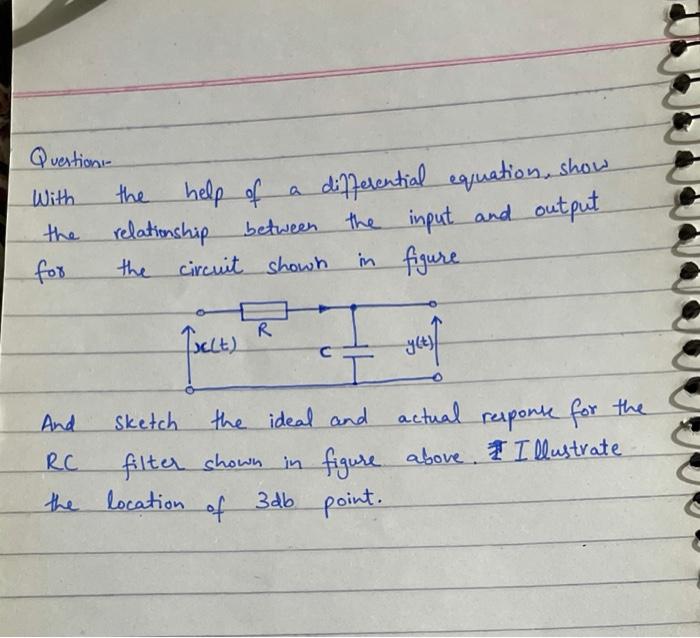 Question:-
With the help of a differential equation, show
the relationship between the input and output
for the circuit shown in figure
R
x(t)
C
y(t)
And sketch the ideal and actual response for the
RC filter shown in figure above. Illustrate
the location of 3db point.